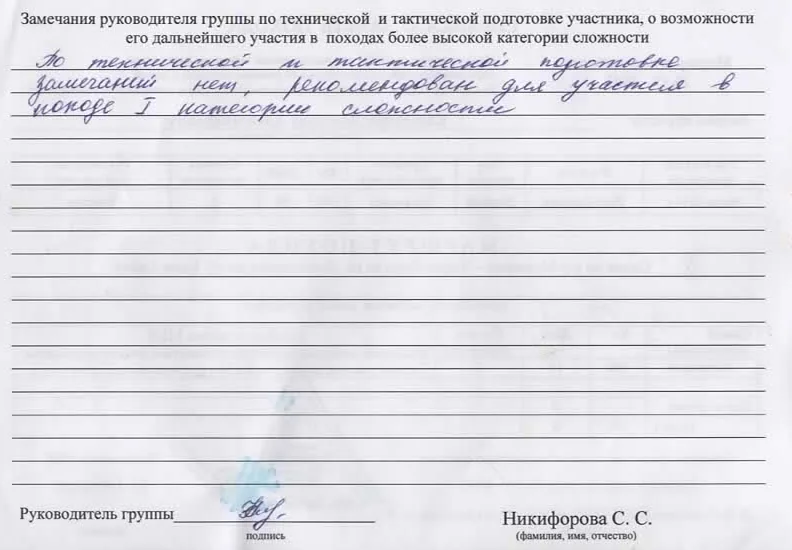 Замечания руководителя группы по технической и тактической подготовке участника, о возможности
его дальнейшего участия в походах более высокой категории сложности
По технической и тактической подготовке
замечаний нет, рекомендован для участия в
походе I категории сложности
Руководитель группы
подпись
Никифорова С. С.
(фамилия, имя, отчество)